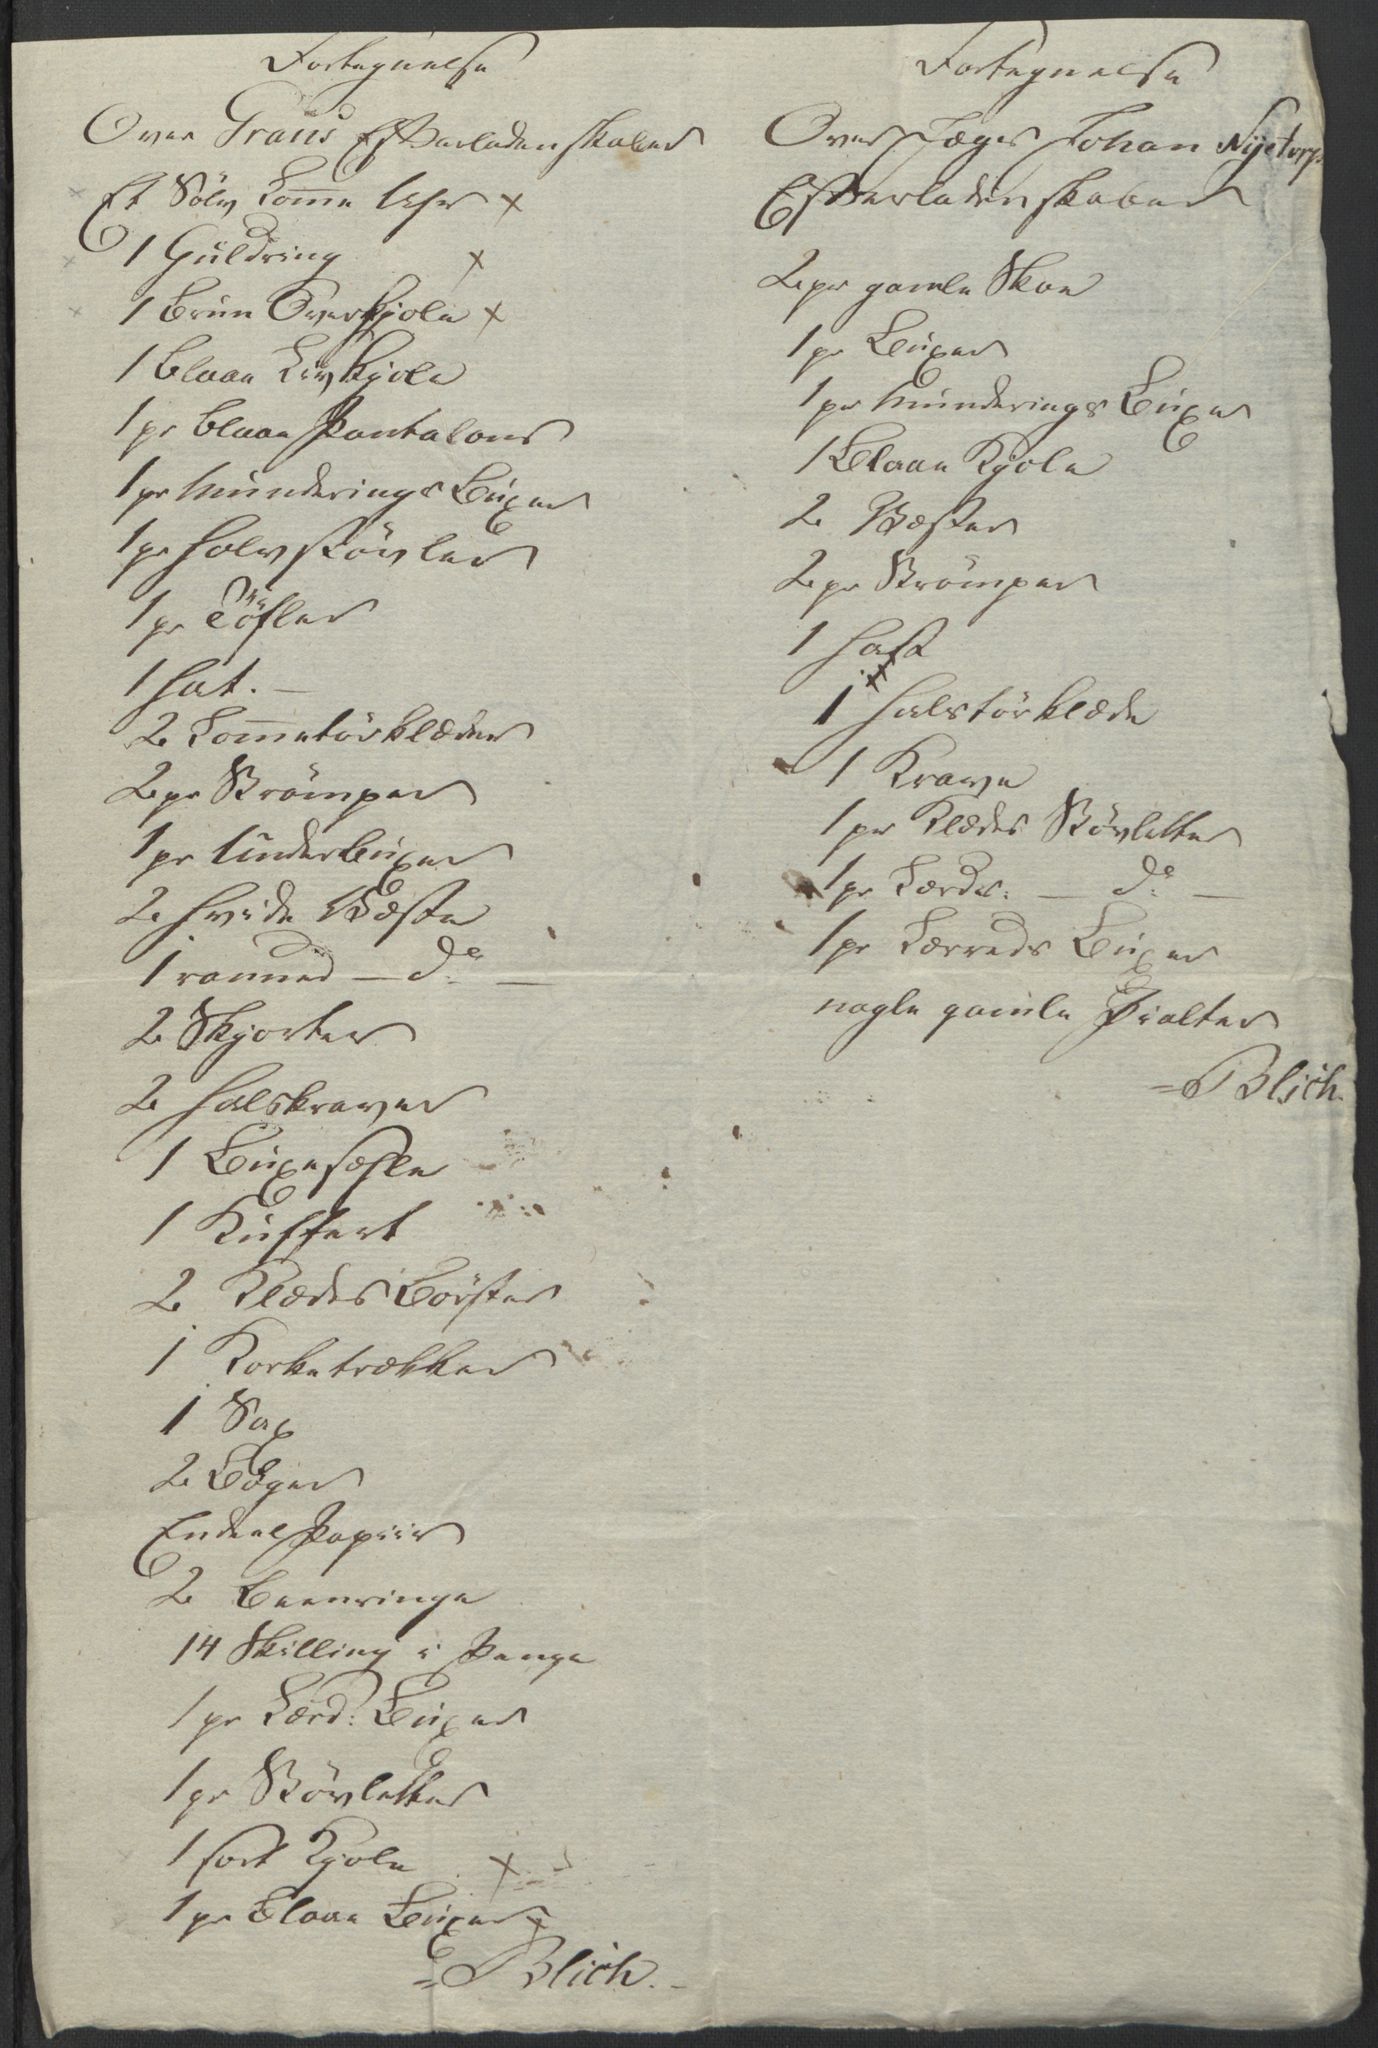 Fortegnelse
Over Trans Efterladenskaber
Et Sölv Lom̅e Uhr x
1 Guldring x
1 brun Overkjole x
1 blaae Livkjole
1 pr blaae Pantalons
1 pr Munderings Buxer
1 pr Halvstövler
1 pr Töfler
1 Hat. —
2 Lom̅etörklæder
2 pr Strömper
1 pr Underbuxer
2 Hvide Væste
1 ranned — do —
2 Skjorter
2 Halskraver
1 Buxesehle
1 Kuffert
2 Klædes Börster
1 Korketrækker
1 Sax
2 Böger
Endeel Papiir
2 Beenringe
14 Skilling i Penge
1 pr Lærd: Buxer
1 pr Stövletter
1 sort Kjole x
1 pr Blaae Buxer x
= Blich. —
Fortegnelse
Over Jæger Johan Nijetorp
Efterladenskaber
2 pr gamle Skoe
1 pr Buxer
1 pr Munderings Buxer
1 Blaae Kjole
2 Væster
2 pr Strömper
1 Hatt
1 Halstörklæde
1 Krave
1 pr Klædes Stövletter
1 pr Lærds: — do —
1 pr Lærreds Buxer
nogle gamle Pialter
= Blich.